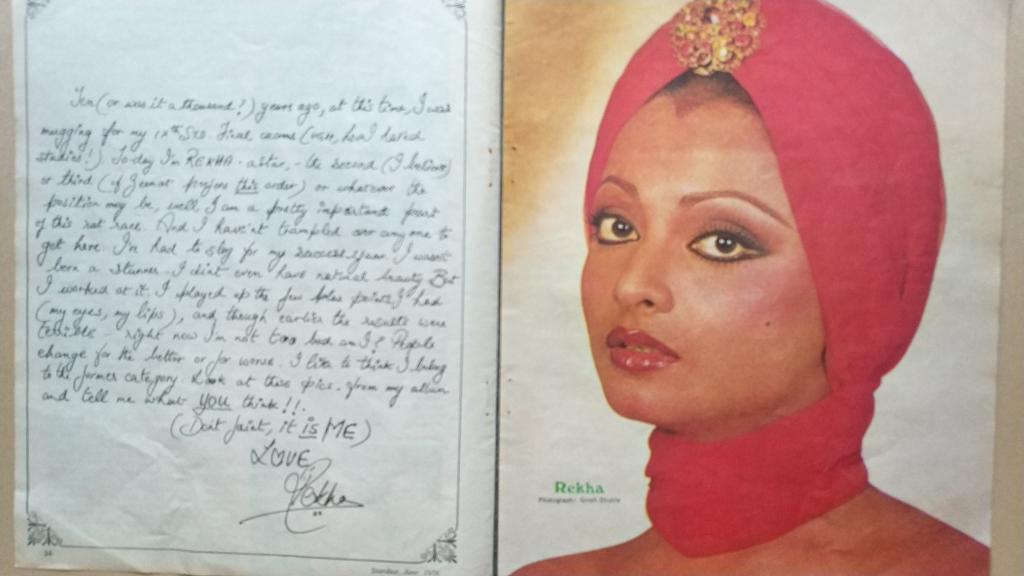 Ten (or was it a thousand?) years ago, at this time, I was
mugging for my IXth Std Final exams (ugh, how I hated
studies!). To-day I'm REKHA - a star, - the second (I believe)
or third (if Zeenat prefers this order) or whatever the
position may be, well, I am a pretty important part
of this rat race. And I haven't trampled over anyone to
get here. I've had to slog for my success. I wasn't
born a stunner. I didnt even have natural beauty. But
I worked at it. I played up the few plus points I had
(my eyes, my lips), and though earlier the results were
terrible - right now I'm not too bad am I? People
change for the better or for worse. I like to think I belong
to the former category. Look at these pics. from my album
and tell me what YOU think!!.
(Dont faint, it is ME)
LOVE
Rekha
34
Stardust, June 1976
Rekha
Photograph: